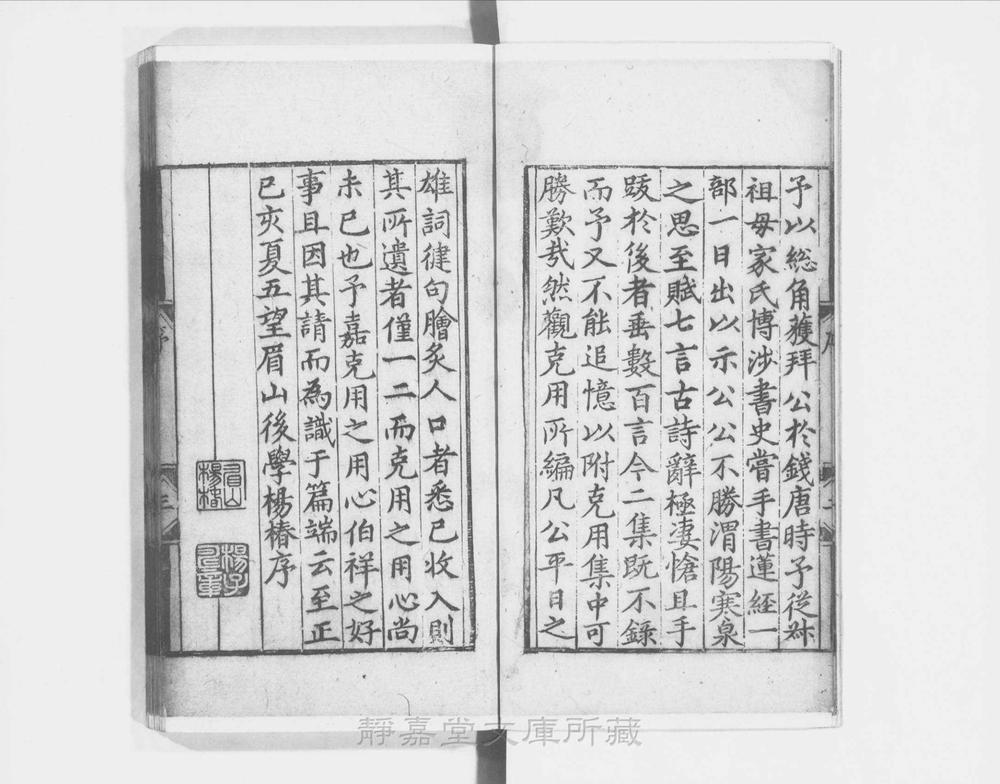 予以総角獲拜 公於錢唐時予從叔
祖母家氏博涉書史嘗手書蓮經一
部一日出以示公公不勝渭陽寒泉
之思至賦七言古詩辭極淒愴且手
跋於後者垂數百言今二集既不錄
而予又不能追憶以附克用集中可
勝歎哉然觀克用所編凡公平日之
雄詞健句膾炙人口者悉已收入則
其所遺者僅一二而克用之用心尚
未已也予嘉克用之用心伯祥之好
事且因其請而為識于篇端云至正
己亥夏五望眉山後學楊椿序
序
二
三
眉山
楊椿
楊子
靜嘉堂文庫所藏